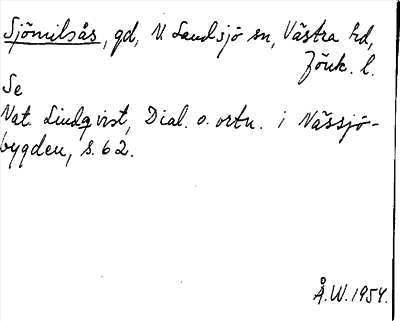 Sjömilsås, gd, N. Sandsjö sn, Västra hd,
Jönk. l.
Se
Nat. Lindqvist, Dial. o. ortn. i Nässjö-
bygden, s. 62.
Å.W. 1954.